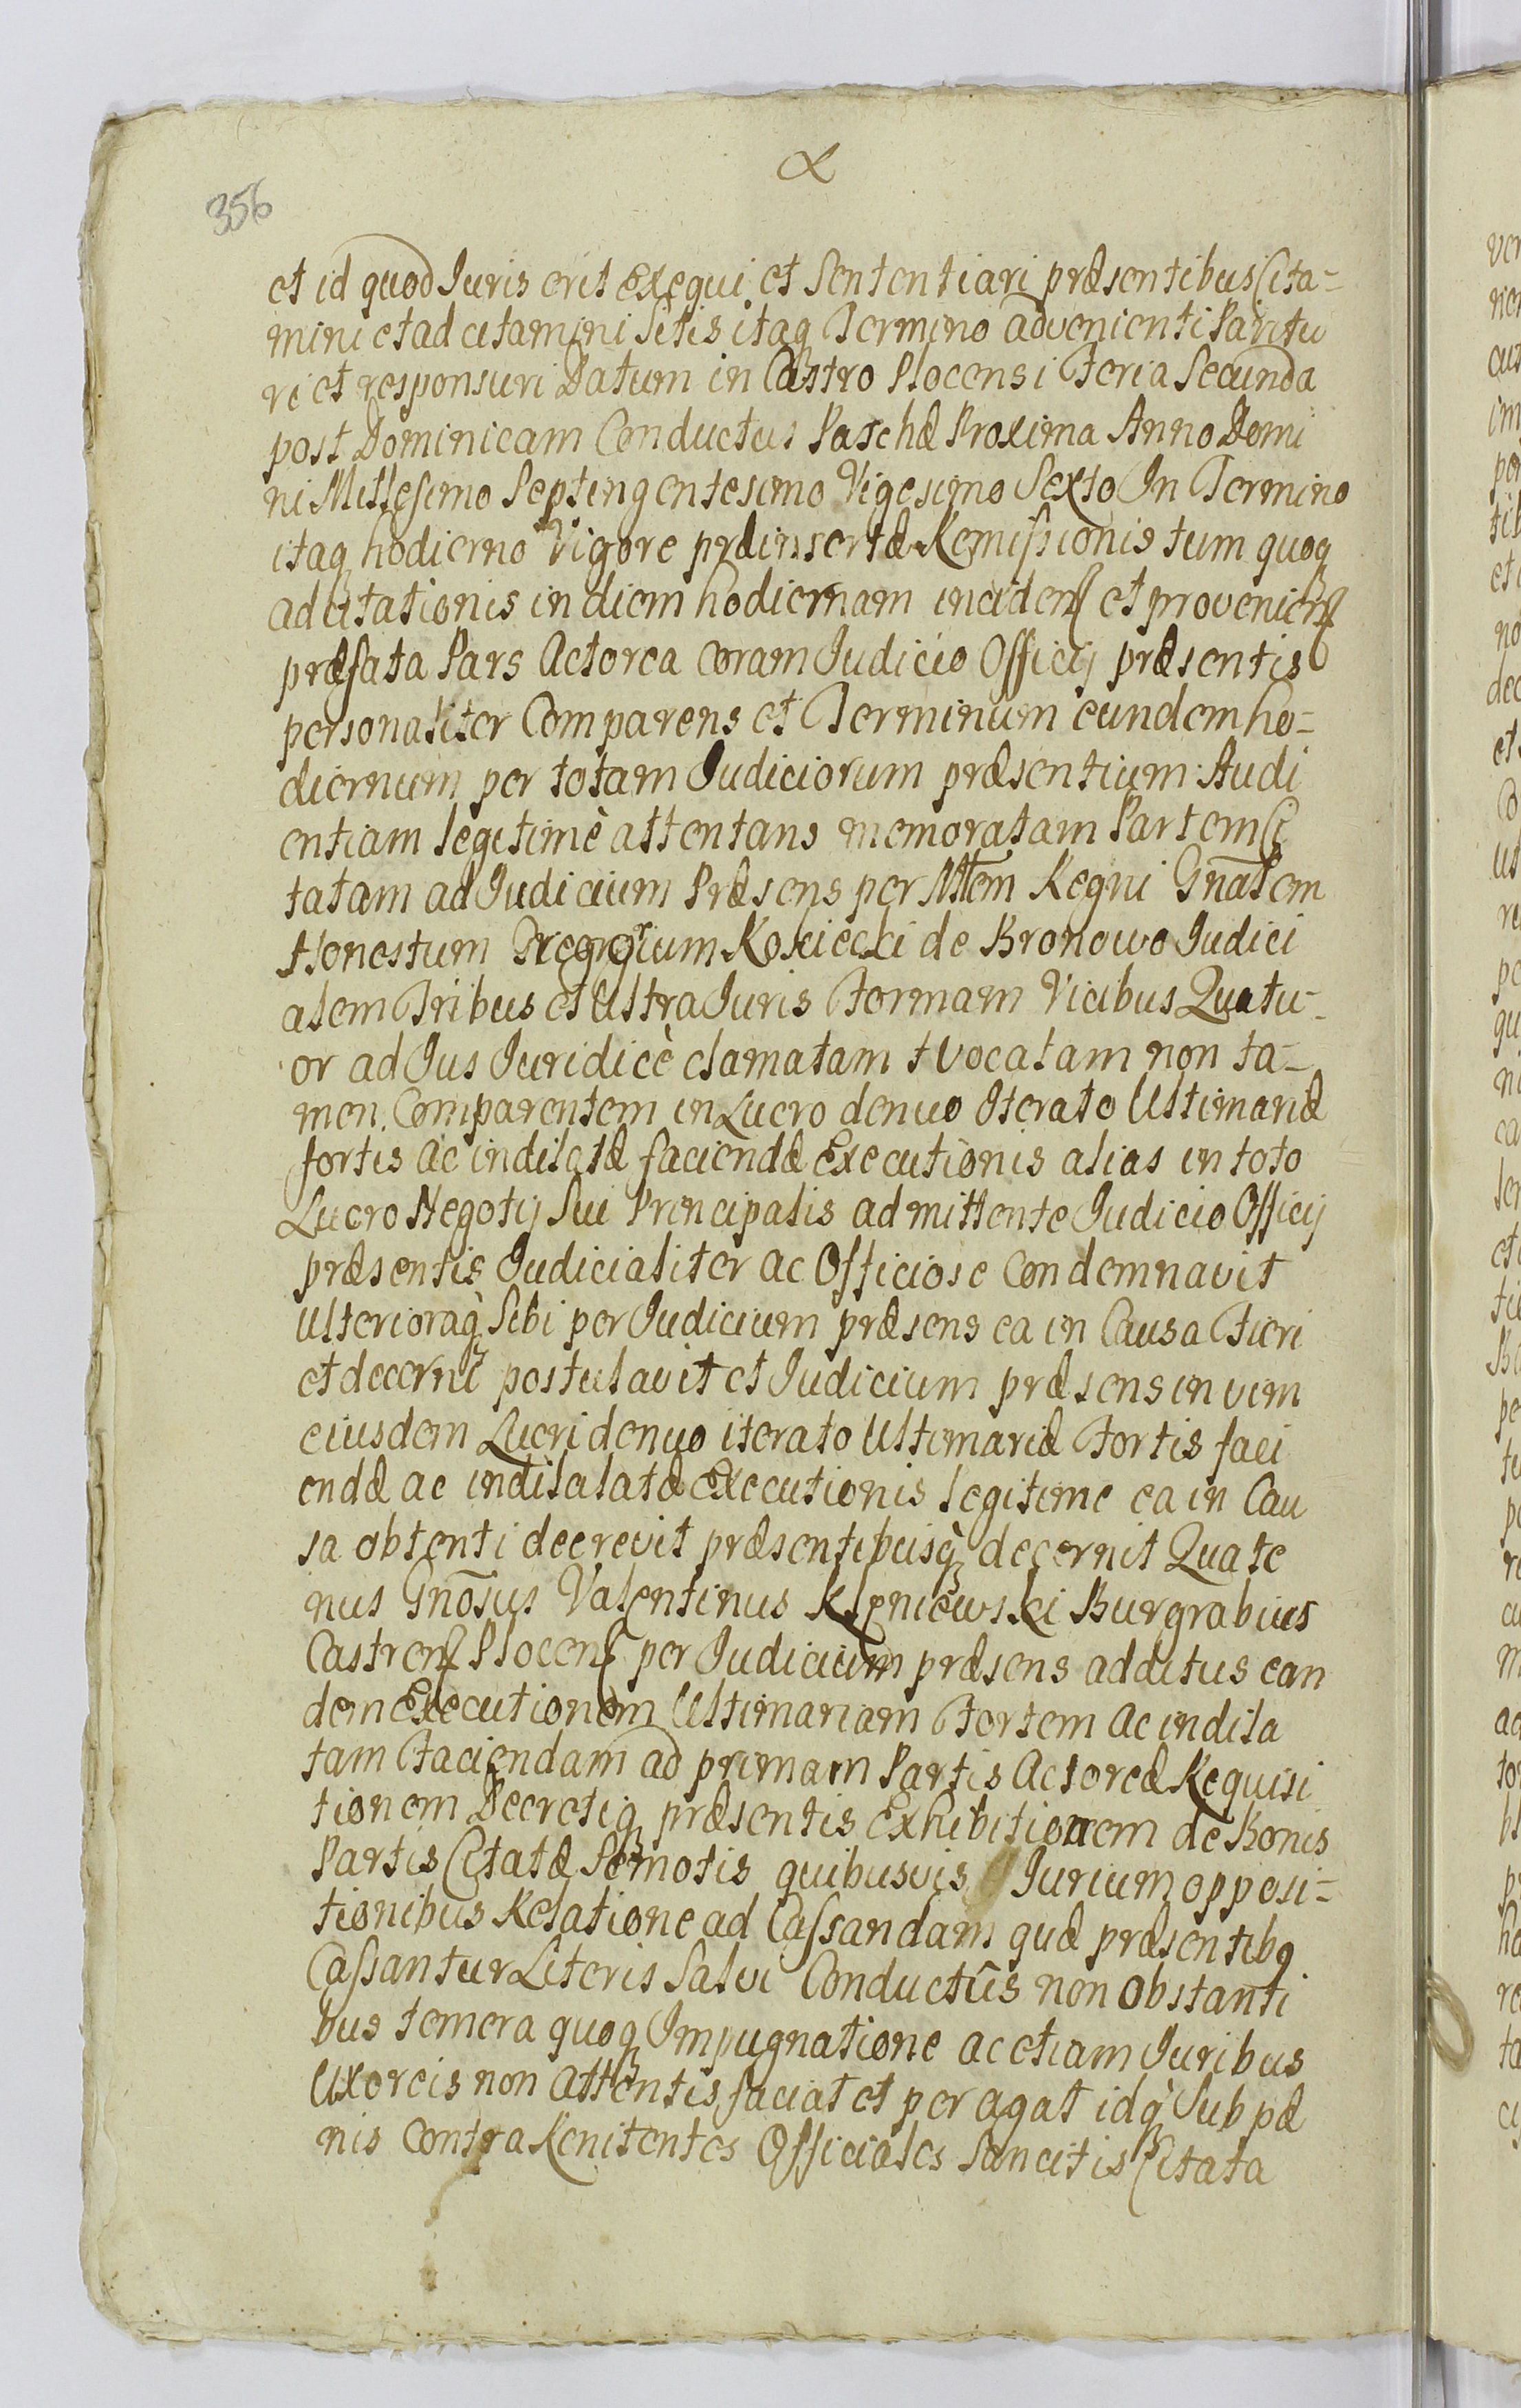 356
et id quod Juris erit exequi et Sententiari præsentibus Cita=
mini et ad citamini Sitis itaq Termino advenienti Paritu
ri et responsuri Datum in Castro Plocensi Feria Secunda
post Dominicam Conductus Paschæ Proxima Anno Domi
ni Millesimo Septingentesimo Vigesimo Sexto In Termino
itaq hodierno Vigore præinsertæ Remissionis tum quoq
adcitationis in diem hodiernam inciden et provenien
præfata Pars Actorea coram Judicio Officij præsentis
personaliter Comparens et Terminum eundem ho=
diernum per totam Judiciorum præsentium Audi
entiam legitimè attentans memoratam Partem Ci
tatam ad Judicium Præsens per Mttem Regni Gnalem
Honestum Gregorium Kosciecki de Bronowo Judici
alem Tribus et Ultra Juris Formam Vicibus Quatu=
or ad Jus Juridicè clamatam t vocatam non ta=
men Comparentem in Lucro denuo Iterato Ultimariæ
fortis ac indilatæ faciendæ Executionis alias in toto
Lucro Negotij Sui Principalis admittente Judicio Officij
præsentis Judicialiter ac Officiose condemnavit
Ulterioraq Sibi per Judicium præsens ea in Causa Fieri
et decerni postulavit et Judicium præsens in vim
eiusdem Lucri denuo iterato Ultimariæ Fortis faci
endæ ac indilalatæ Executionis legitime ea in Cau
sa obtenti decrevit præsentibusq decernit Quate
nus Gnosus Valentinus Kępniewski Burgrabius
Castren Plocen per Judicium præsens additus ean
dem Executionem Ultimariam Fortem ac indila
tam Faciendam ad primam Partis Actoreæ Requisi
tionem Decretiq præsentis Exhibitionem de Bonis
Partis Citatæ Semotis quibusvis Jurium opposi=
tionibus Relatione ad Cassandam quæ præsentibq
Cassantur Literis Salvi Conductûs non obstanti
bus temera quoq Impugnatione ac etiam Juribus
Uxoreis non attentis faciat et peragat idq Sub pæ
nis contra Renitentes Officiales Sancitis Citata